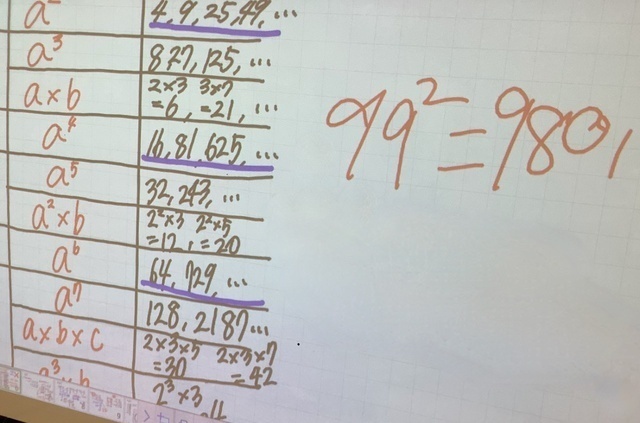 a²
4, 9, 25, 49, ...
a³
8 27, 125, ...
a×b
2×3 3×7
=6, =21, ...
a⁴
16, 81, 625, ...
a⁵
32, 243, ...
a²×b
2²×3 2²×5
=12, =20
a⁶
64, 729, ...
a⁷
128, 2187...
a×b×c
2×3×5 2×3×7
=30 =42
a³×b
2³×3
99²=9801